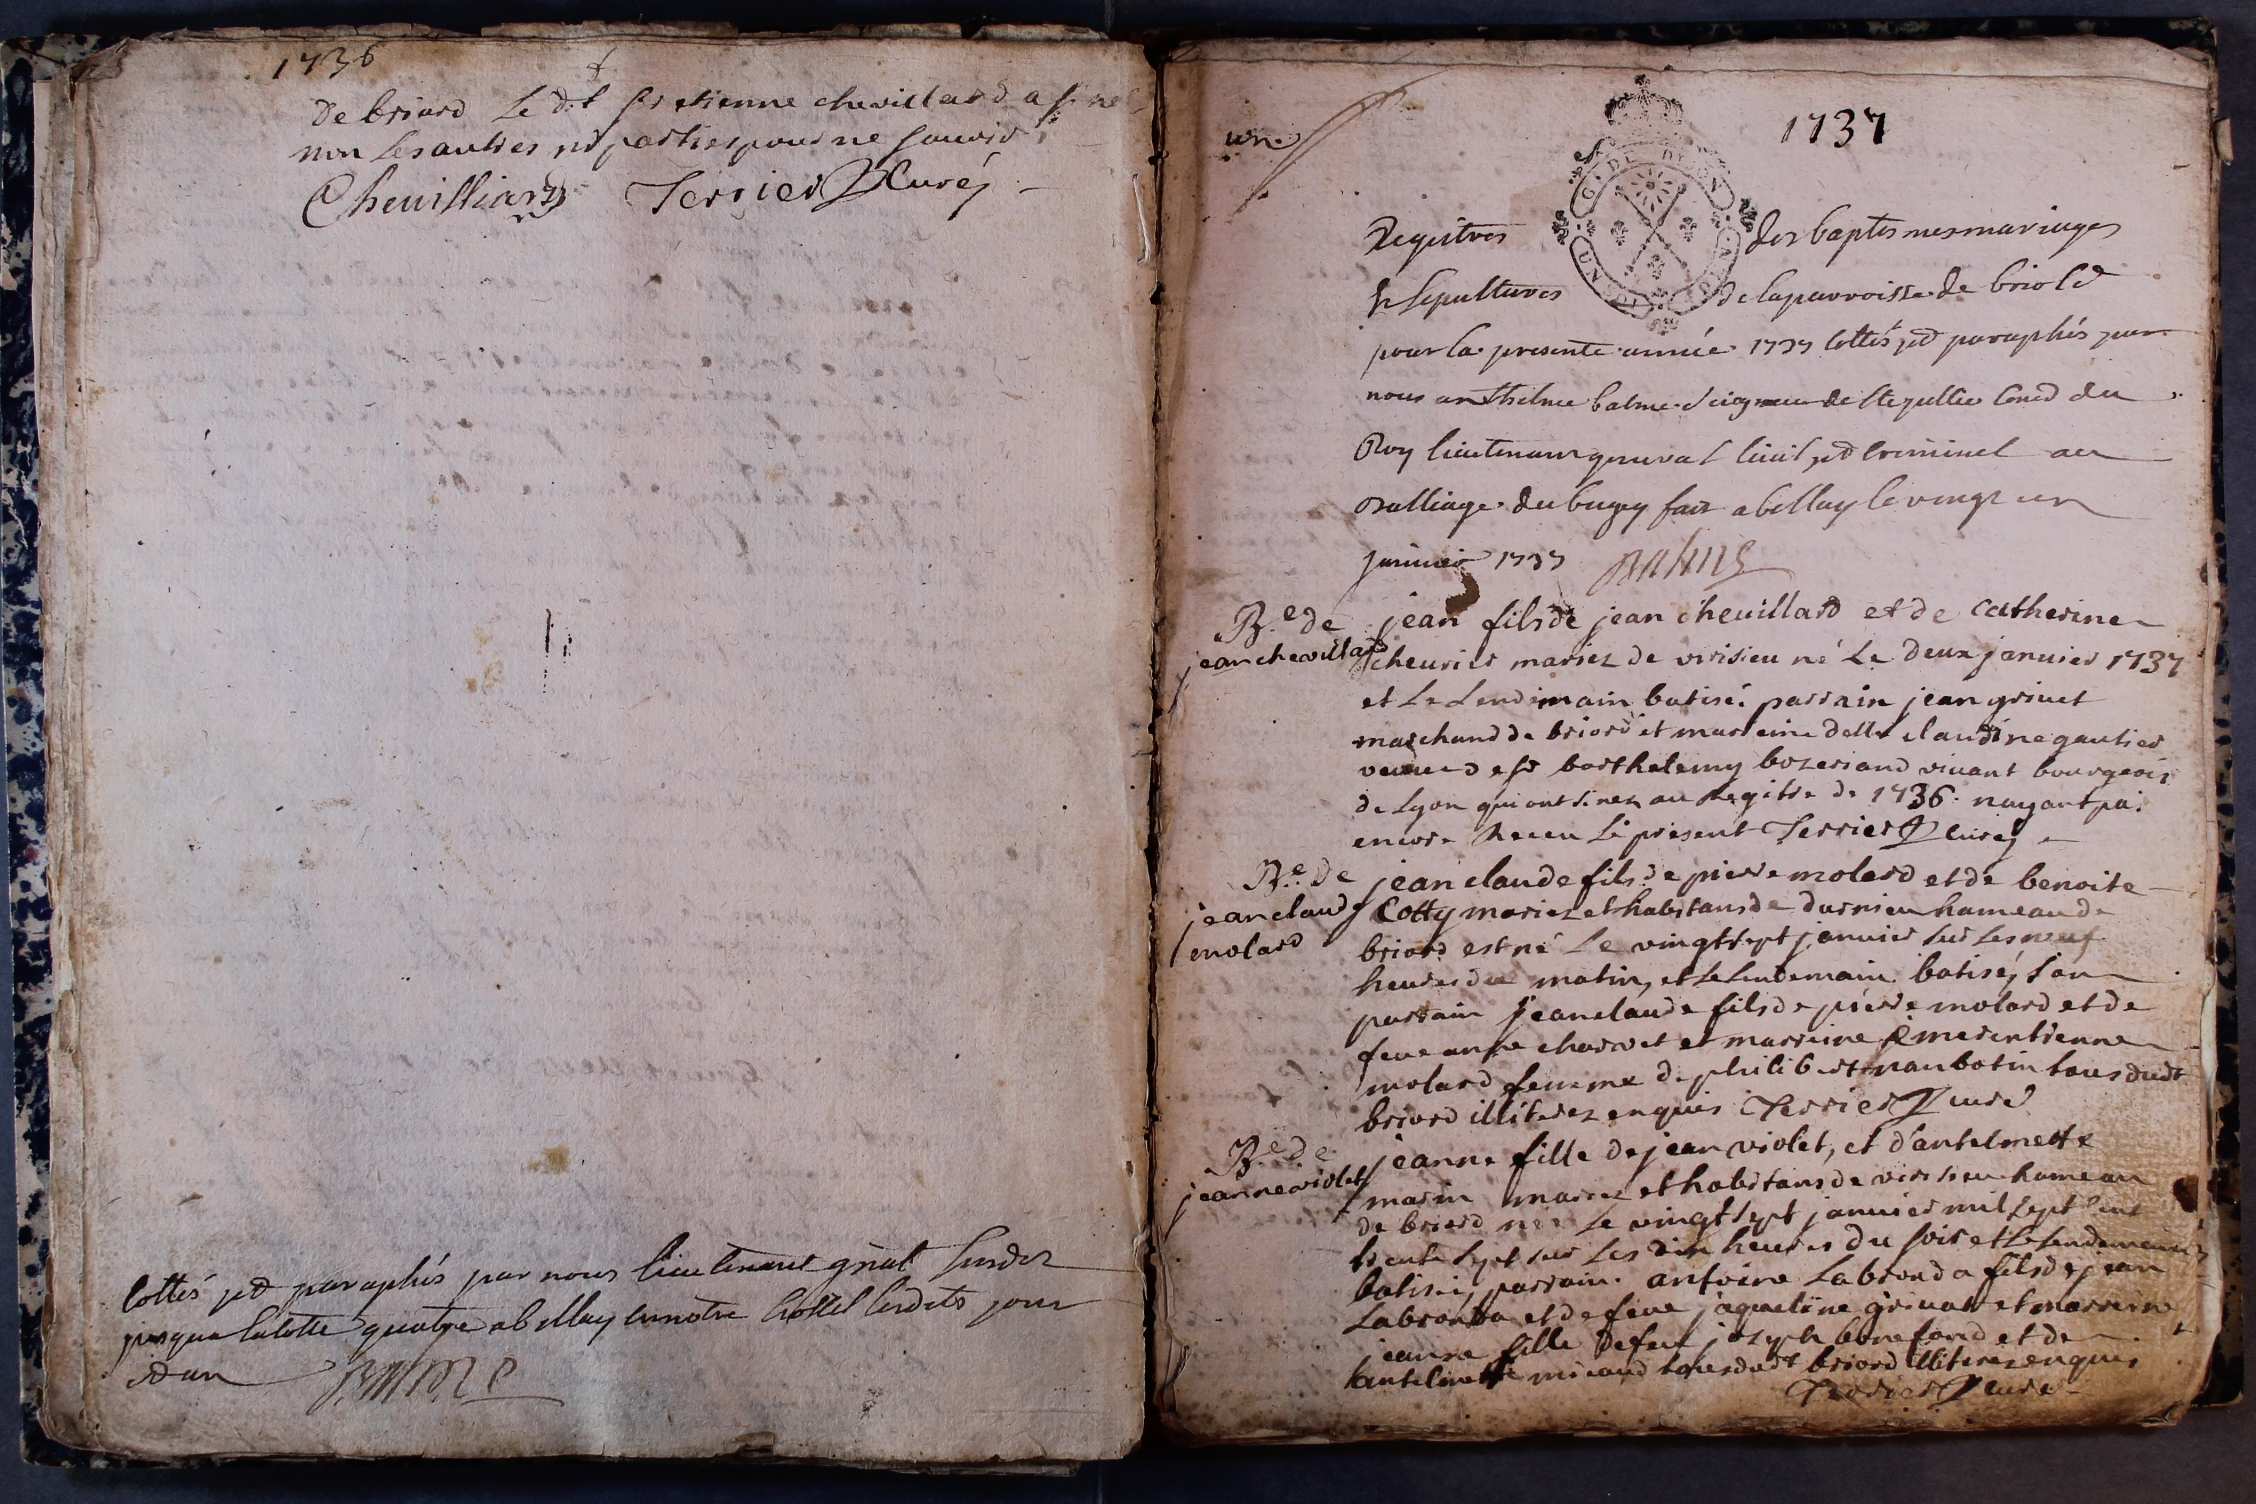 1736
de briord le dit sr etienne chevillard a siné
non les autres nd parties pour ne scavoir
Chevilliard Terrier Curéj
cottés et paraphés par nous lieutenant gnal susdit
jusqua la cotte quatre a bellay en notre hottel lesdits jour
et an BALME
un
1737
G. DE DIJON
Registres des baptesmes mariages
et sepultures de la parroisse de briord
pour la presente année 1737 cottés et paraphés par
nous anthelme balme seigneur de Ste jullie Coner du
Roy lieutenant general civil et criminel au
Balliage du bugey fait a bellay le vingt un
janvier 1737 BALME
B.e de jean chevillard
jean fils de jean chevillard et de catherine
cheurier mariez de verisieu né le deux janvier 1737
et le lendemain batisé parrain jean grivet
marchand de briord et marreine delle claudine gautier
veuve de sr barthelemy bozeriand vivant bourgeois
de Lyon qui ont sinez au Registre de 1736. nayant pas
encore Receu le present Terrier curéj
B.e de jean claude molard
jean claude fils de pierre molard et de benoite
Cotty mariez et habitans de dornieu hameau de
briord est né le vingt sept janvier sur les neuf
heures du matin, et le lendemain batiséj son
parrain jean claude fils de pierre molard et de
feue anne charvet et marreine Emerentienne
molard femme de philibert nambotin tous dudt
briord illiterez enquis Terrier curé
B.e de jeanne violet
jeanne fille de jean violet, et d'antelmette
marin mariez et habitans de verisieu hameau
de briord née le vingt sept janvier mil sept cent
trente sept sur les dix heures du soir et le lendemain
batiséj parrain. antoine Labronda fils de jean
Labronda et de feue jaqueline grivat et marreine
jeanne fille de feu joseph bonefond et de
antelmette micaud tous dudt briord illiterez enquis
Terrier curé